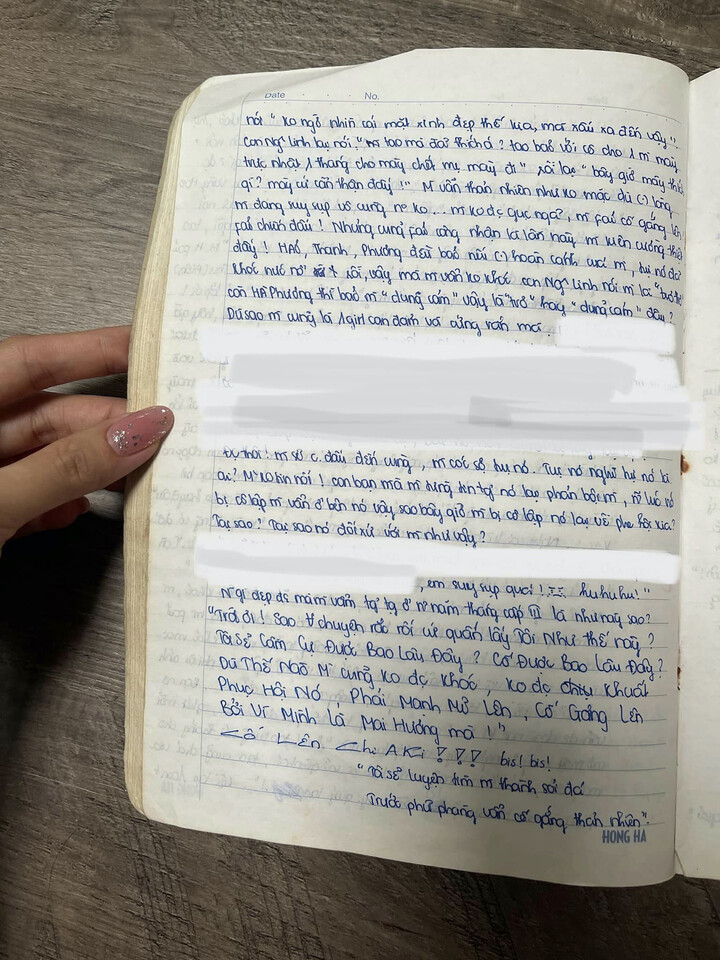 Date No.
nói " ko ngờ nhìn cái mặt xinh đẹp thế kia, mà xấu xa đến vậy".
con Ng Linh lại nói: " tao mà đời thích á? tao bảo với cô cho 1 m mày
trực nhật 1 tháng cho mày chết mẹ mày đi" rồi lại " bây giờ mày thích
gì? mày cứ cẩn thận đấy!" M vẫn thản nhiên như ko mặc dù (-) lòng
m đang suy sụp vô cùng ... m ko dc gục ngã, m fải cố gắng lên,
fải chiến đấu! Nhưng cũng fải công nhận là lần này m kiên cường
đấy! Hà, Thanh, Phương đều bảo nếu (-) hoàn cảnh của m, họ nó đã
khóc nức nở rồi, vậy mà m vẫn ko khóc con Ng Linh nói m là "trơ"
còn Hà Phương thì bảo m "dũng cảm" vậy là "trơ" hay "dũng cảm" đây?
Dù sao m cũng là 1 girl can đảm và cứng rắn mà.
thôi! m sẽ c. đấu đến cùng, m cóc sợ họ nó. Tụi nó nghĩ họ nó là
ai? M ko tin nổi! con bạn mà m từng tin tg nó lại phản bội m, lúc nó
bị cô lập m vẫn ở bên nó vậy sao bây giờ m bị cô lập nó lại về phe kia?
Tại sao? Tại sao nó đối xử với m như vậy?
, em suy sụp quá! huhuhu!"
N gì đẹp đẽ mà m vẫn tg tg ở n năm tháng cấp III là như này sao?
"Trời ơi! Sao ∀ chuyện rắc rối cứ quấn lấy Tôi Như thế này?
Tôi Sẽ Cầm Cự Được Bao Lâu Đây? Cố Được Bao Lâu Đây?
Dù Thế Nào M Cũng Ko dc Khóc, Ko dc chịu Khuất
Phục Hội Nó, Phải Mạnh Mẽ Lên, Cố Gắng Lên
Bởi Vì Mình Là Mai Hương mà!"
Cố Lên. Chi AKi!!! bis! bis!
"Tôi sẽ luyện tim m thành sỏi đá
Trước phũ phàng vẫn cố gắng thản nhiên".
HONG HA